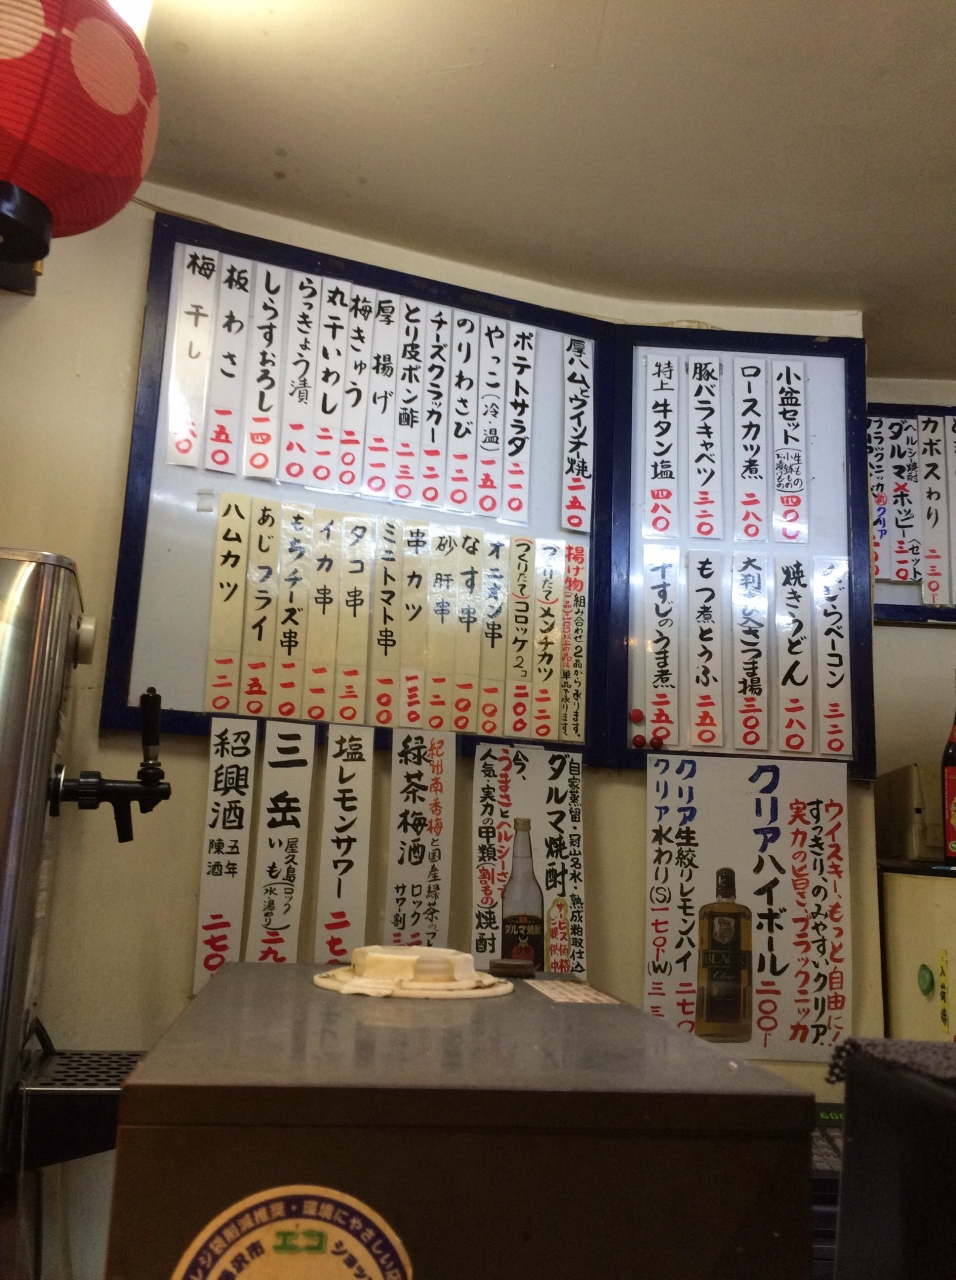 厚ハムとウインナー焼 二五〇
ポテトサラダ 二一〇
やっこ(冷温) 一五〇
のりわさび 一二〇
チーズクラッカー 一二〇
とり皮ポン酢 二三〇
厚揚げ 二一〇
梅きゅう 二〇〇
丸干いわし 二一〇
らっきょう漬 一八〇
しらすおろし 一四〇
板わさ 一五〇
梅干し
揚げ物 組み合わせ2品から承ります。
つくりたてメンチカツ 一二〇
(つくりたて)コロッケ2コ 二〇〇
オニオン串 一〇〇
なす串 一〇〇
砂肝串 一二〇
串カツ 一三〇
ミニトマト串 一〇〇
タコ串 一三〇
イカ串 一一〇
もちチーズ串 一一〇
あじフライ 一五〇
ハムカツ 一二〇
小盆セット (生もの 小鉢もの お漬けもの) 四〇〇
ロースカツ煮 二八〇
豚バラキャベツ 三二〇
特上牛タン塩 四八〇
ベーコン 三二〇
焼きうどん 二八〇
さつま揚 三〇〇
もつ煮とうふ 二五〇
牛すじのうま煮 二五〇
カボスわり 二三〇
ダルマ焼酎
ダルマホッピー(セット)
ブラックニッカ クリア
自家蒸留・冠山名水・熟成粕取仕込
ダルマ焼酎
サービス価格
今、
うまさとヘルシーさで
人気・実力の甲類(割もの)焼酎
紀州南高梅と国産緑茶の
緑茶梅酒 ロック サワー割
塩レモンサワー
三岳 屋久島いも(ロック 水 湯わり)
紹興酒 五年陳酒 二七〇
ウイスキー、もっと自由に!
すっきり、のみやすいクリア
実力の旨さブラックニッカ
クリアハイボール 二〇〇
クリア生絞りレモンハイ 二七〇
クリア水わり(S)一七〇(W)三
BLACK
Clear
レジ袋削減推奨・環境にやさしい
沢市 エコショップ